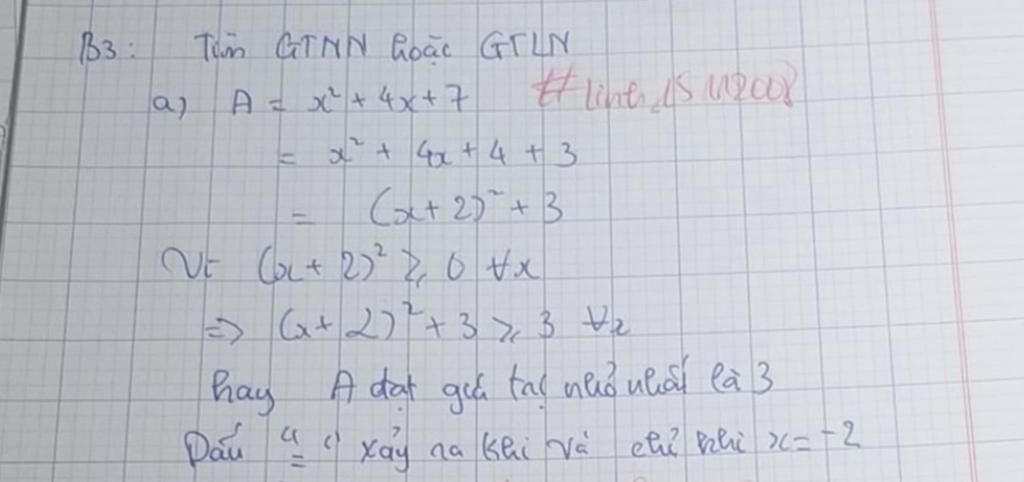 B3: Tìm GTNN hoặc GTLN
a) A = x² + 4x + 7
= x² + 4x + 4 + 3
= (x + 2)² + 3
Vì (x + 2)² ≥ 0 ∀x
=> (x + 2)² + 3 ≥ 3 ∀x
hay A đạt giá trị nhỏ nhất là 3
Dấu "=" xảy ra khi và chỉ khi x = -2